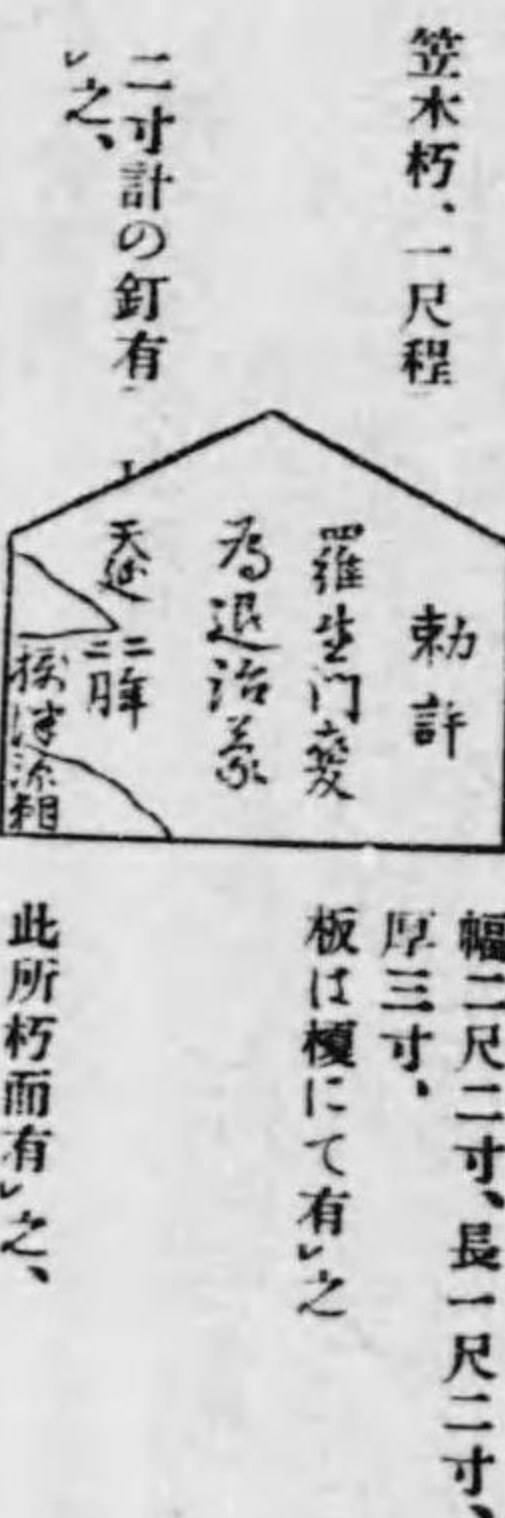 笠木朽、一尺程
二寸計の釘有
㆑之、
勅許
羅生门變
為退治蒙
天延二年
二月
摂津源頼
幅二尺二寸、長一尺二寸、
厚三寸、
板は榎にて有㆑之
此所朽而有㆑之、